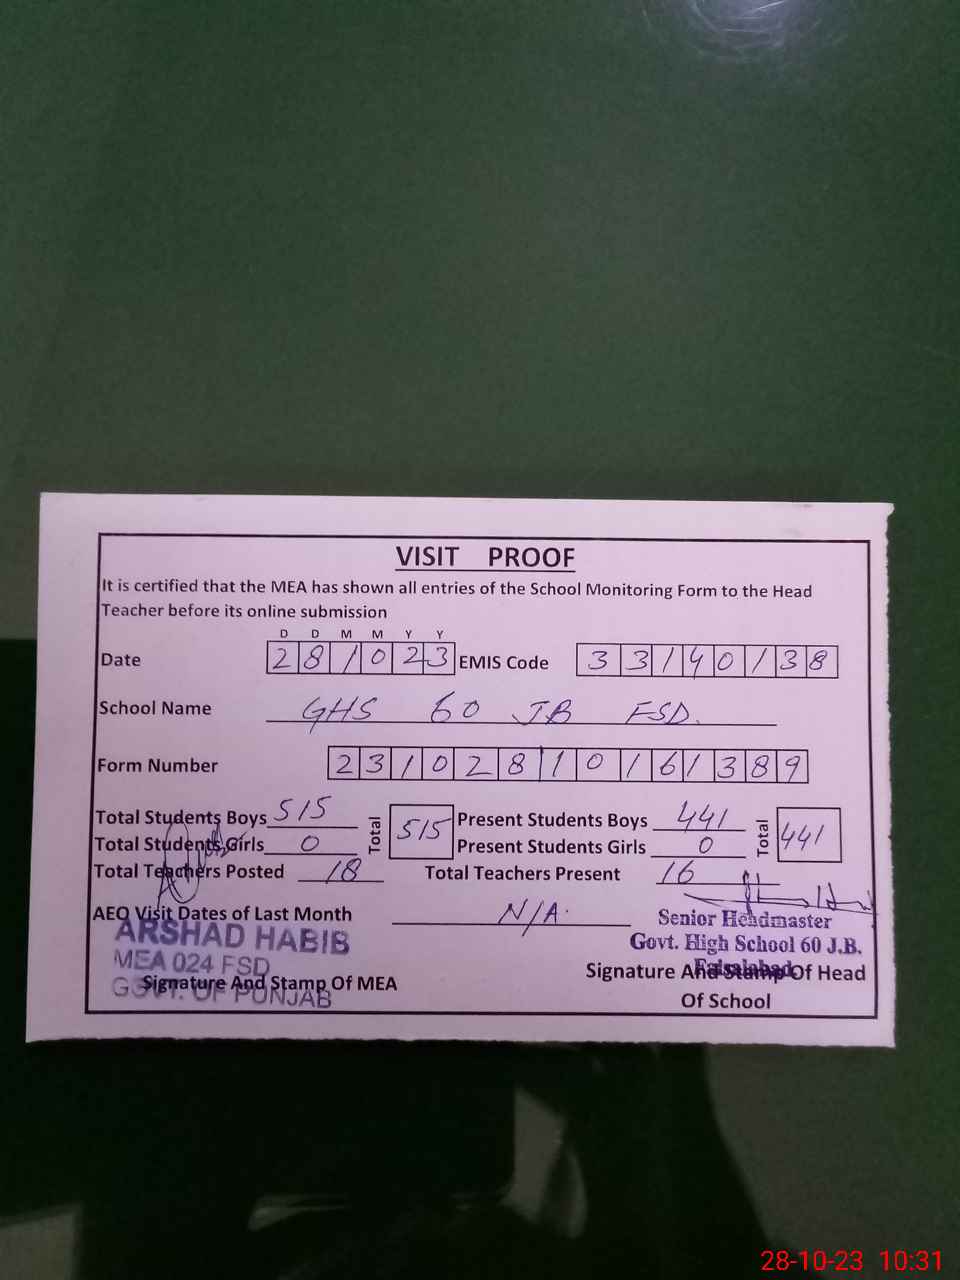 VISIT PROOF
It is certified that the MEA has shown all entries of the School Monitoring Form to the Head
Teacher before its online submission
D D M M Y Y
Date 2 8 1 0 2 3 EMIS Code 3 3 1 4 0 1 3 8
School Name GHS 60 JB FSD.
Form Number 2 3 1 0 2 8 1 0 1 6 1 3 8 9
Total Students Boys 515 Total 515 Present Students Boys 441 Total 441
Total Students Girls 0 Present Students Girls 0
Total Teachers Posted 18 Total Teachers Present 16
AEO Visit Dates of Last Month N/A.
ARSHAD HABIB
MEA 024 FSD
GOVT. OF PUNJAB
Signature And Stamp Of MEA
Senior Headmaster
Govt. High School 60 J.B.
Faisalabad
Signature And Stamp Of Head
Of School
28-10-23 10:31